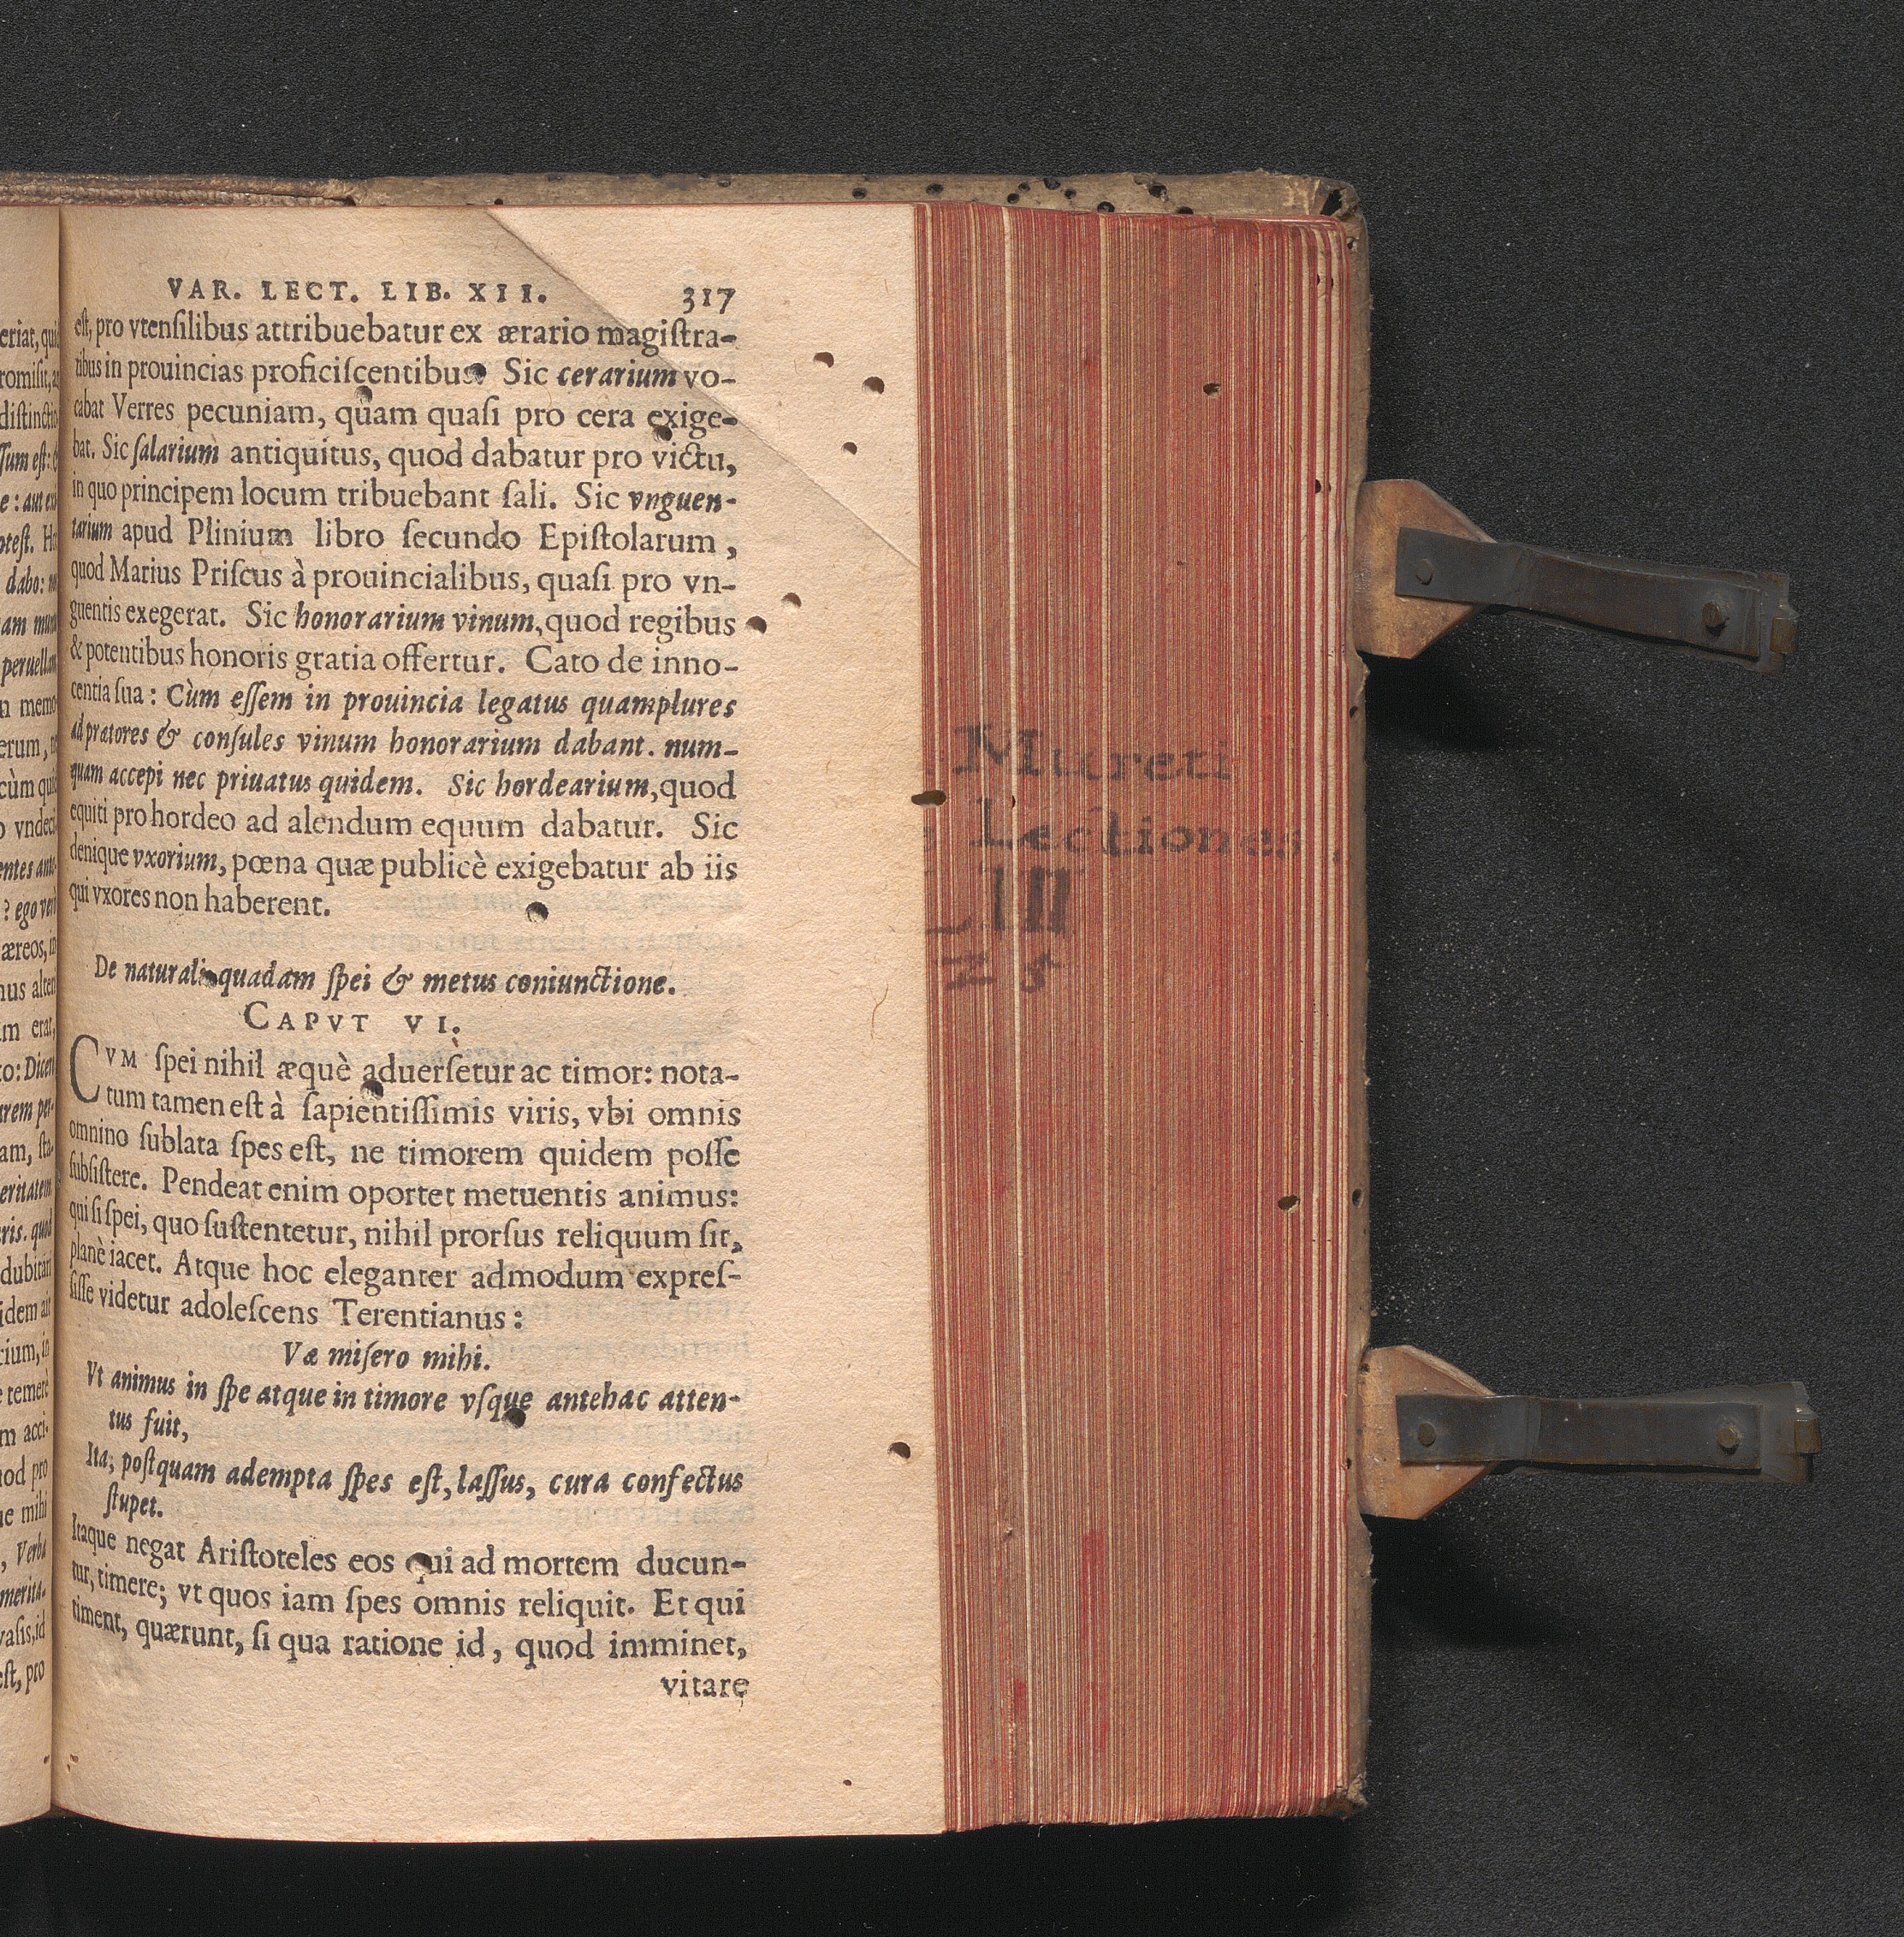 VAR. LECT. LIB. XII. 317
est, pro vtensilibus attribuebatur ex ærario magistra-
tibus in prouincias proficiscentibus. Sic cerarium vo-
cabat Verres pecuniam, quam quasi pro cera exige-
bat. Sic salarium antiquitus, quod dabatur pro victu,
in quo principem locum tribuebant sali. Sic vnguen-
tarium apud Plinium libro secundo Epistolarum,
quod Marius Priscus à prouincialibus, quasi pro vn-
guentis exegerat. Sic honorarium vinum, quod regibus
& potentibus honoris gratia offertur. Cato de inno-
centia sua: Cùm essem in prouincia legatus quamplures
ad prætores & consules vinum honorarium dabant. num-
quam accepi nec priuatus quidem. Sic hordearium, quod
equiti pro hordeo ad alendum equum dabatur. Sic
denique vxorium, pœna quæ publicè exigebatur ab iis
qui vxores non haberent.
De naturali quadam spei & metus coniunctione.
CAPVT VI.
CVM spei nihil æquè aduersetur ac timor: nota-
tum tamen est à sapientissimis viris, vbi omnis
omnino sublata spes est, ne timorem quidem posse
subsistere. Pendeat enim oportet metuentis animus:
qui si spei, quo sustentetur, nihil prorsus reliquum sit,
planè iacet. Atque hoc eleganter admodum expres-
sisse videtur adolescens Terentianus:
Væ misero mihi.
Vt animus in spe atque in timore vsque antehac atten-
tus fuit,
Ita; postquam adempta spes est, lassus, cura confectus
stupet.
Itaque negat Aristoteles eos qui ad mortem ducun-
tur, timere; vt quos iam spes omnis reliquit. Et qui
timent, quærunt, si qua ratione id, quod imminet,
vitare
Mureti
Lectiones
III
Z 5